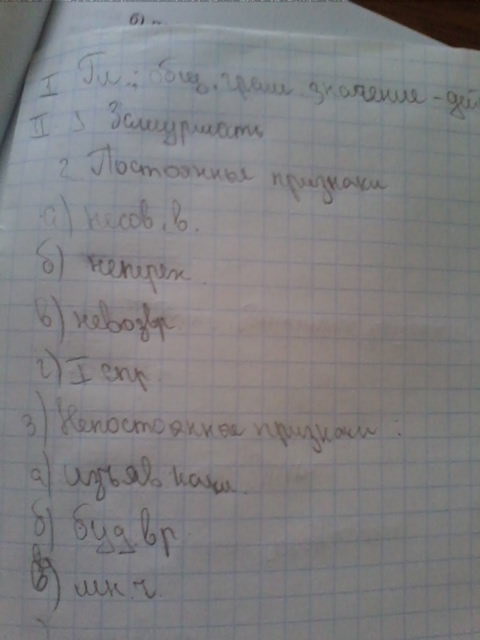 I Гл.; общ. грам. значение - дей
II. Зашуршать
2 Постоянные признаки
а) несов. в.
б) неперех.
в) невозвр
г) I спр.
3) Непостоянные признаки :
а) изъяв накл.
б) буд вр
в) мн. ч.